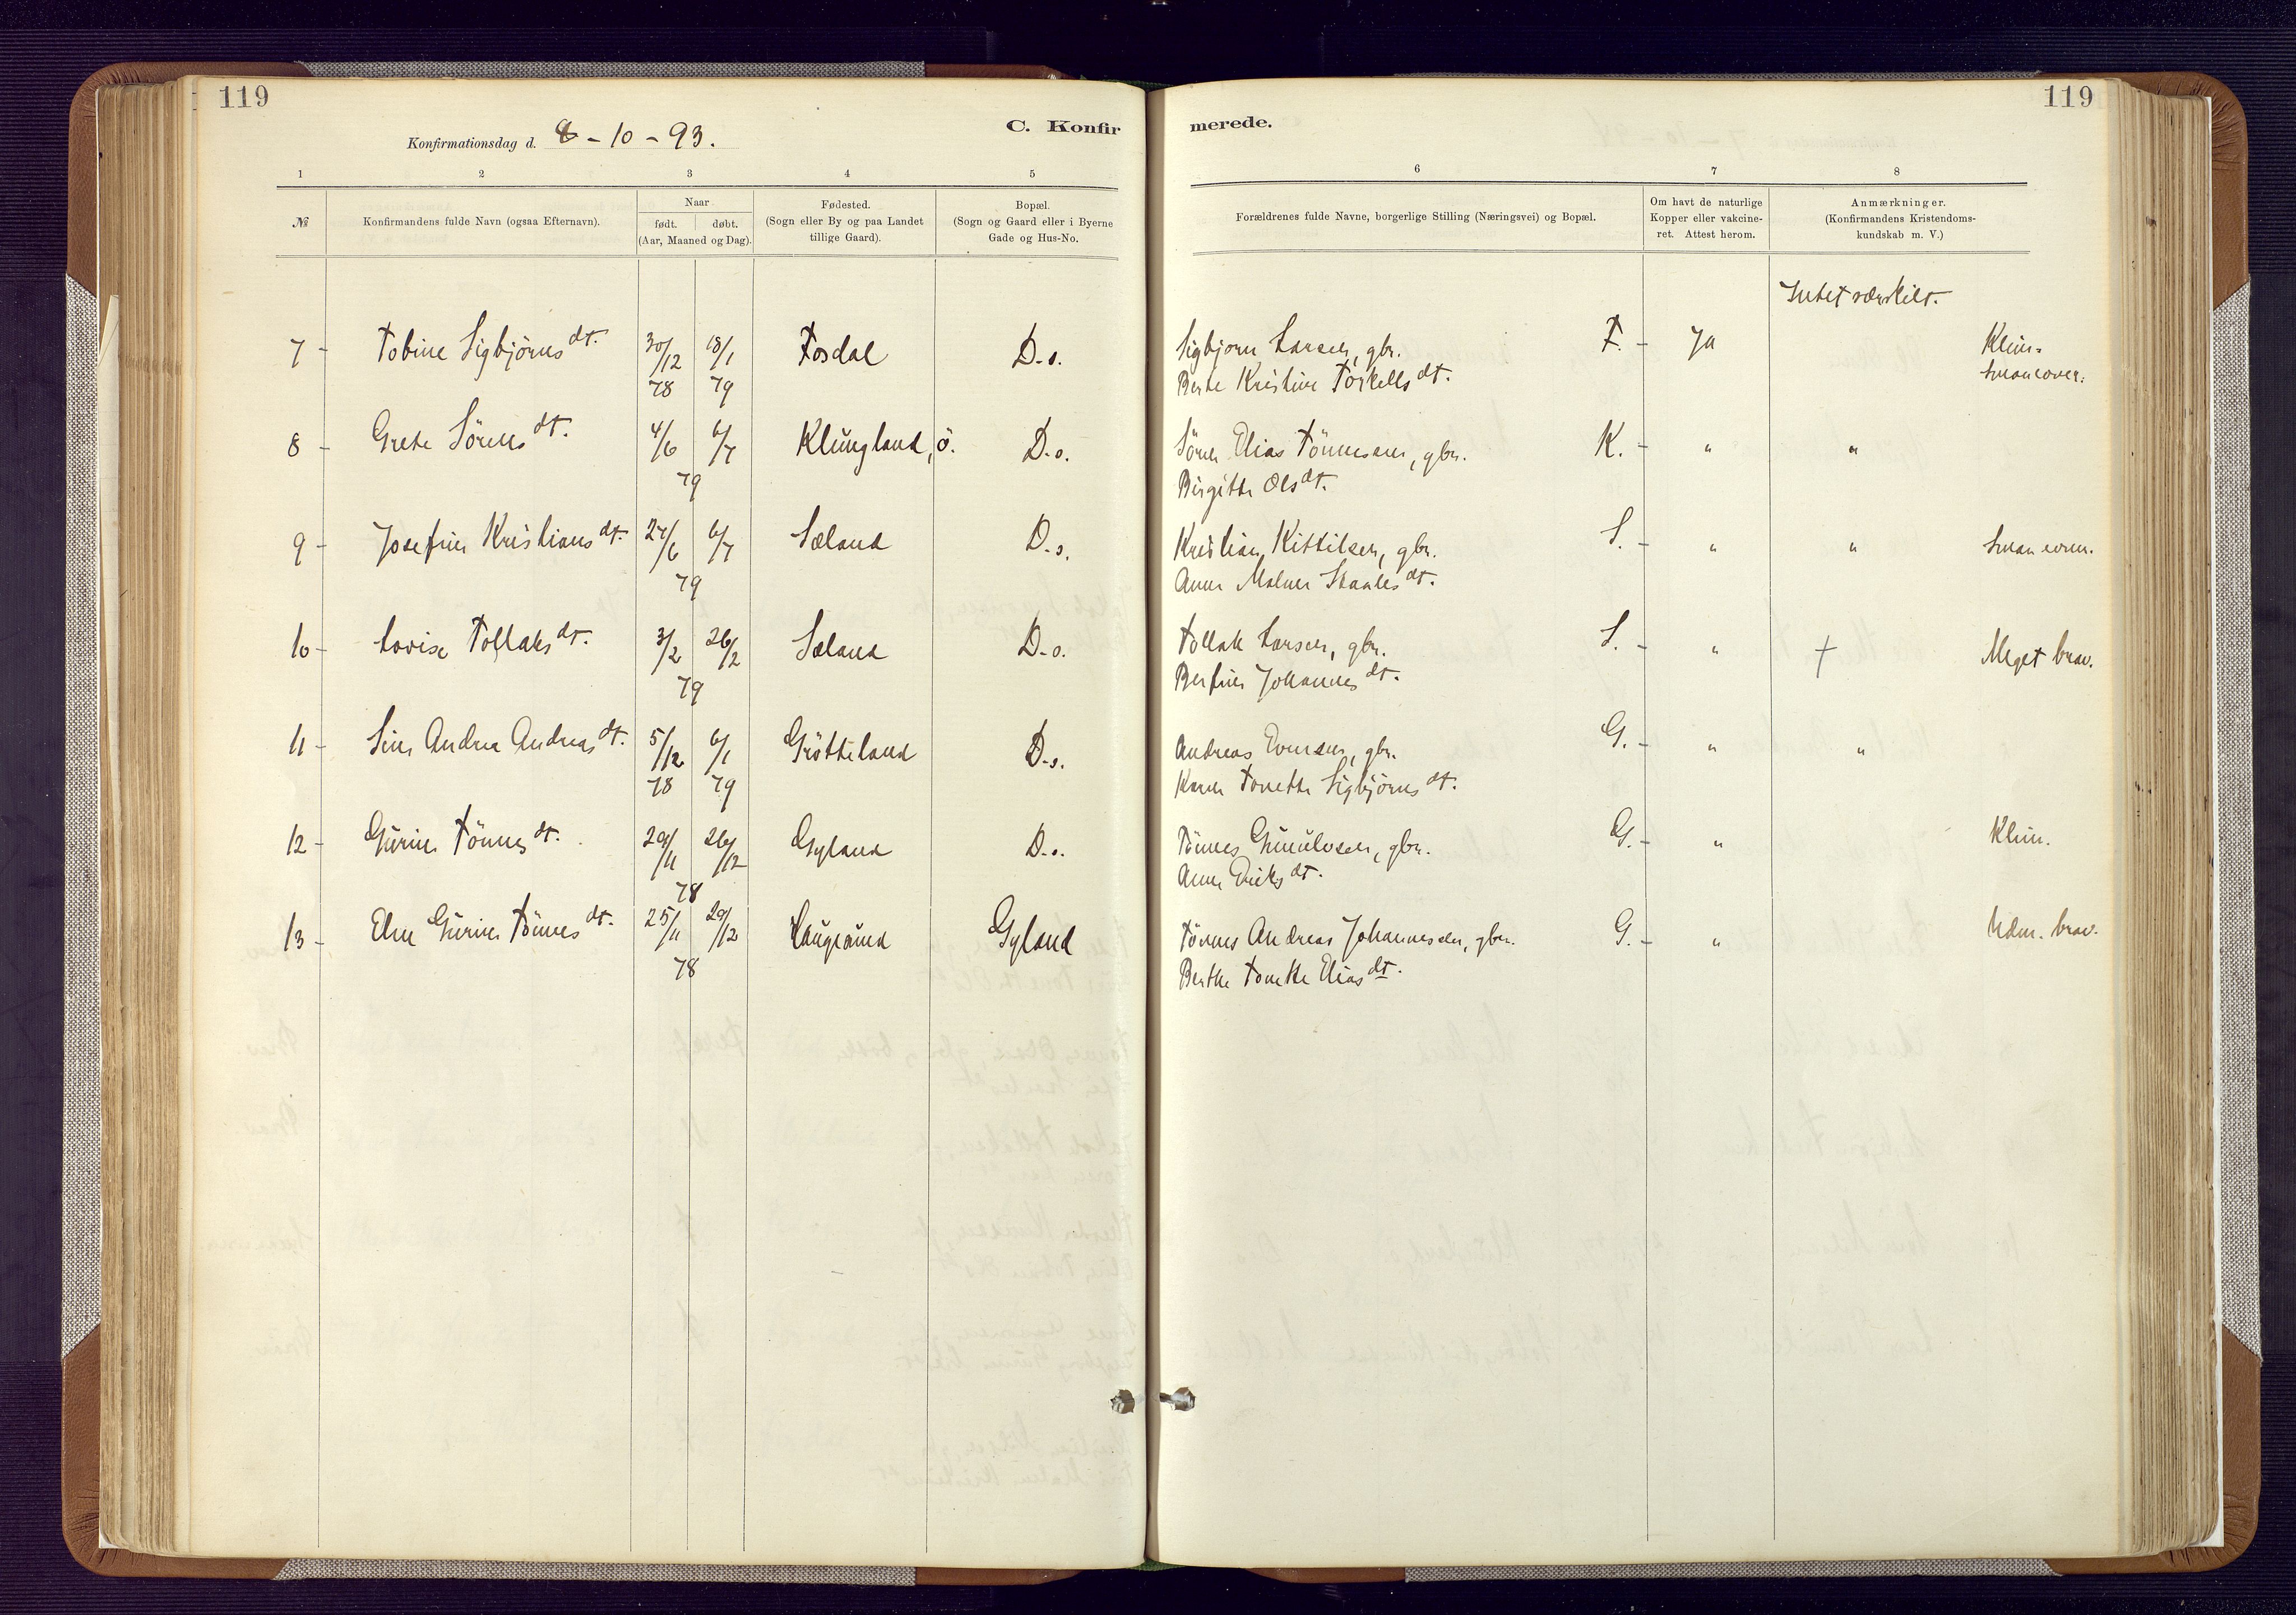 119
119
Konfirmationsdag d. 8 - 10 - 93.
C. Konfir
merede.
1 2 3 4 5 6 7 8
№
Konfirmandens fulde Navn (ogsaa Efternavn).
Naar
født. døbt.
(Aar, Maaned og Dag).
Fødested.
(Sogn eller By og paa Landet
tillige Gaard).
Bopæl.
(Sogn og Gaard eller i Byerne
Gade og Hus-No.
Forældrenes fulde Navne, borgerlige Stilling (Næringsvei) og Bopæl.
Om havt de naturlige
Kopper eller vakcine-
ret. Attest herom.
Anmærkninger.
(Konfirmandens Kristendoms-
kundskab m. V.)
Intet særskilt.
7 - Tobine Sigbjörns dt. 30/12 18/1 Fosdal D.o. Sigbjörn Larsen, gbr. F. - Ja
78 79 Berte Kristine Torkells dt.
8 - Grete Sörens dt. 4/6 6/7 Klungland, ö. D.o. Sören Elias Tönnesen, gbr. K. - " "
79 Birgitte Ols dt.
9 - Josefine Kristians dt. 27/6 6/7 Sæland D.o. Kristian Kittilsen, gbr. S. - " "
79 Anne Malene Staales dt.
10 - Lovise Tollaks dt. 3/2 26/2 Sæland D.o. Tollak Larsen, gbr. S. - " † Meget brav.
79 Berfine Johannes dt.
11 - Sine Andrea Andreas dt. 5/12 6/1 Grötteland D.o. Andreas Evensen, gbr. G. - " "
78 79 Karen Tonette Sigbjörns dt.
12 - Gurine Tönnes dt. 29/11 26/12 Gyland D.o. Tönnes Gunulvsen, gbr. G. - "
78 Anne Eriks dt.
13 - Elen Gurine Tönnes dt. 25/11 29/12 Haugland Gyland Tönnes Andreas Johannesen, gbr. G. - " Udm. brav.
78 Berthe Tonette Elias dt.